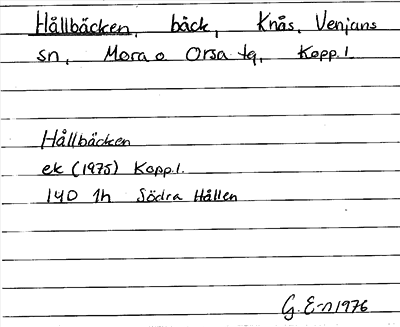 Hållbäcken, bäck, Knås, Venjans
sn, Mora o Orsa tg, Kopp.l.
Hållbäcken
ek (1975) Kopp.l.
14D 1h Södra Hållen
G. E-n 1976